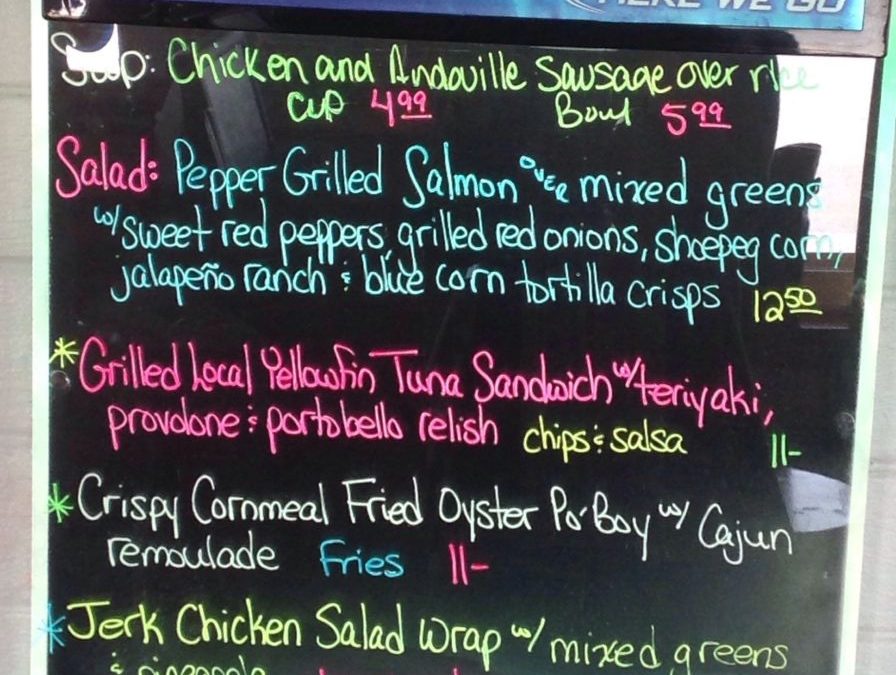 HERE WE GO
Soup: Chicken and Andouille Sausage over rice
cup 4.99 Bowl 5.99
Salad: Pepper Grilled Salmon OVER mixed greens
w/ sweet red peppers, grilled red onions, shoepeg corn,
jalapeño ranch & blue corn tortilla crisps 12.50
*Grilled Local Yellowfin Tuna Sandwich w/ teriyaki,
provolone & portobello relish chips & salsa 11-
*Crispy Cornmeal Fried Oyster Po'Boy w/ Cajun
remoulade Fries 11-
*Jerk Chicken Salad Wrap w/ mixed greens
& pineapple